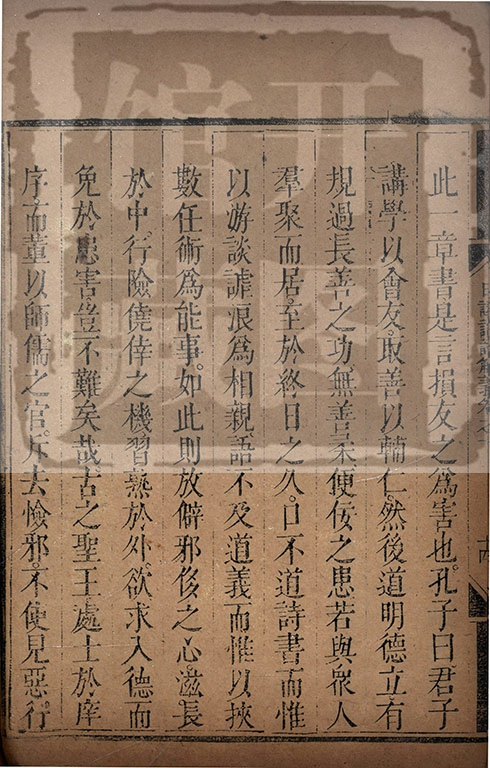 此一章書是言損友之爲害也。孔子曰君子
講學以會友。取善以輔仁。然後道明德立有
規過長善之功。無善柔便佞之患。若與衆人
羣聚而居。至於終日之久。口不道詩書而惟
以游談謔浪爲相親。語不及道義而惟以挾
數任術爲能事。如此則放僻邪侈之心滋長
於中。行險僥倖之機習熟於外。欲求入德而
免於患害。豈不難矣哉。古之聖王處士於庠
序。而董以師儒之官。斥去憸邪。不使見惡行